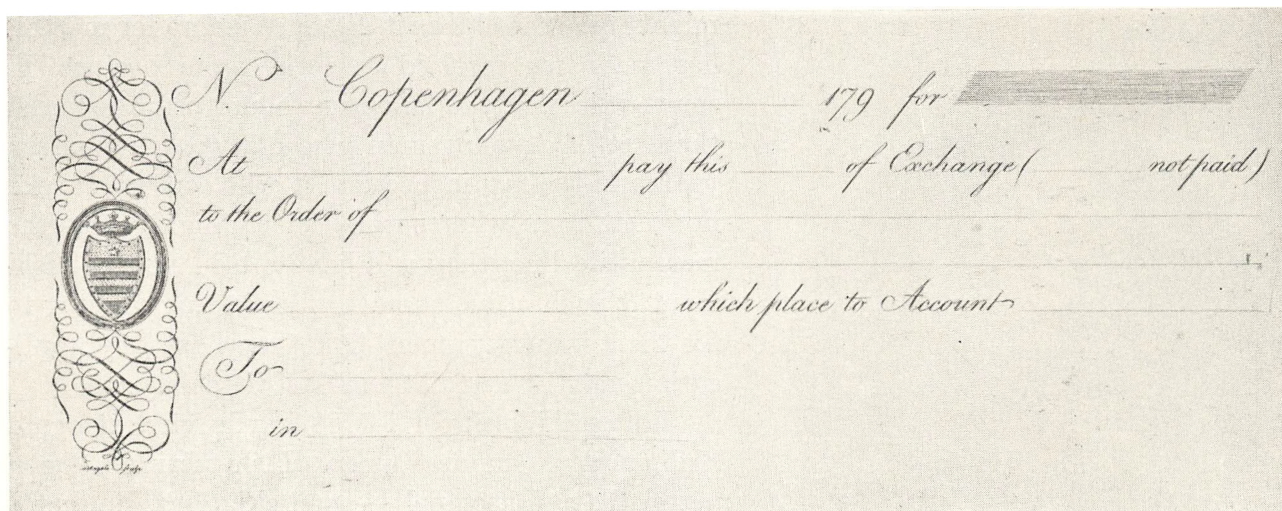 No. Copenhagen 179 for
At pay this of Exchange ( not paid )
to the Order of
Value which place to Account
To
in